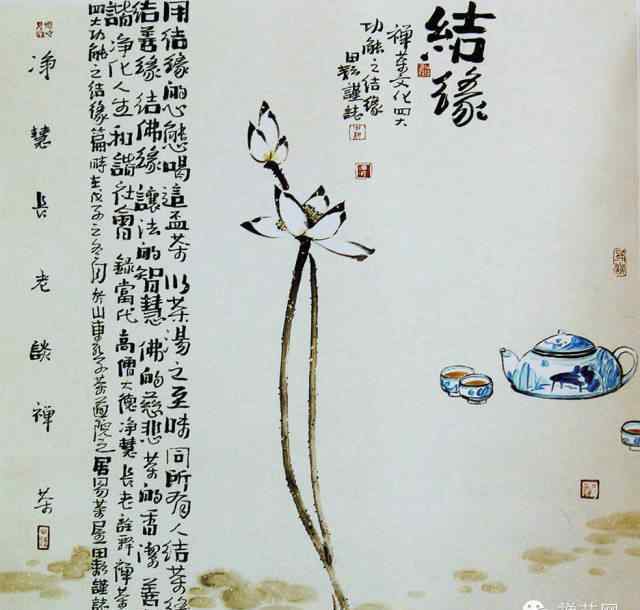 結緣
禪茶文化四大
功能之结缘
謹誌
用结缘的心態喝這盃茶以茶湯之至味同所有人结茶缘
结善缘结佛缘讓法的智慧佛的慈悲茶的香潔善
諧净化人生和諧社會錄當代高僧大德净慧長老詮釋禪茶
四大功能之结缘篇時在戊子之冬月於山東茶院之居易茶屋田謹誌
净慧長老談禪茶
禅茶网